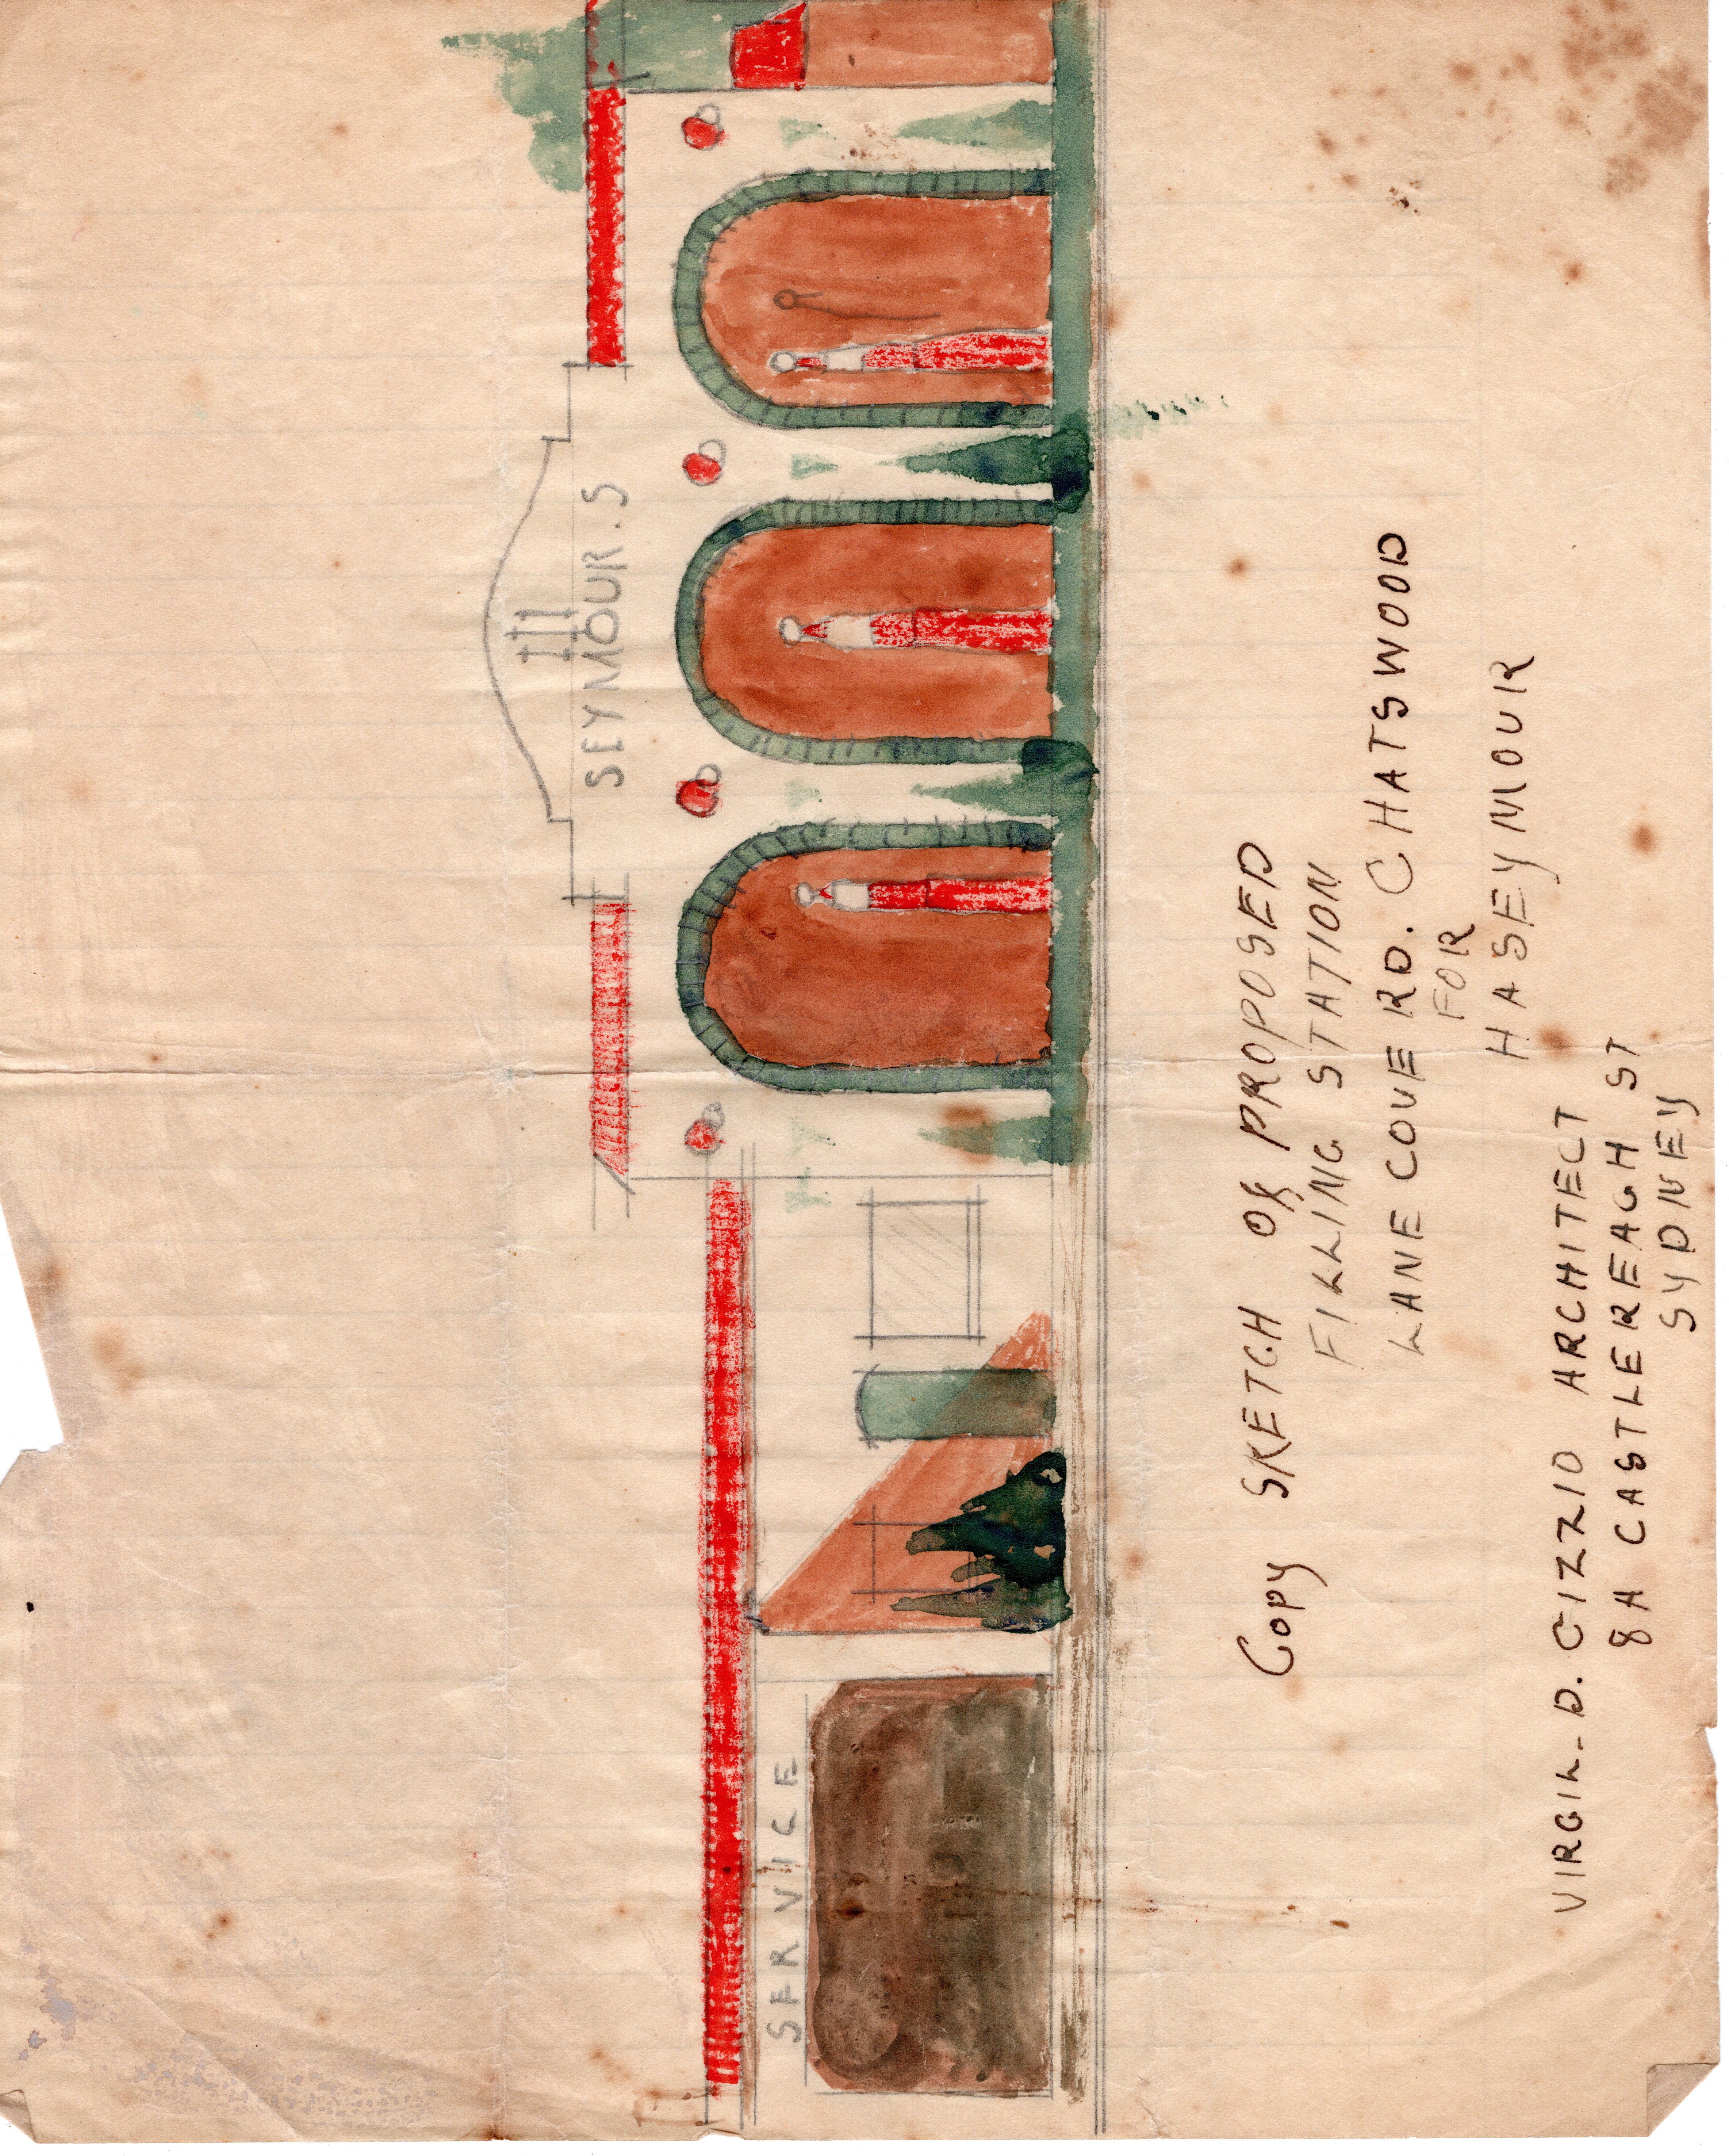 SEYMOUR.S
SERVICE
Copy SKETCH OF PROPOSED
FILLING STATION
LANE COVE RD. CHATSWOOD
FOR
H A SEYMOUR
VIRGIL. D. CIZZIO ARCHITECT
8A CASTLEREAGH ST
SYDNEY